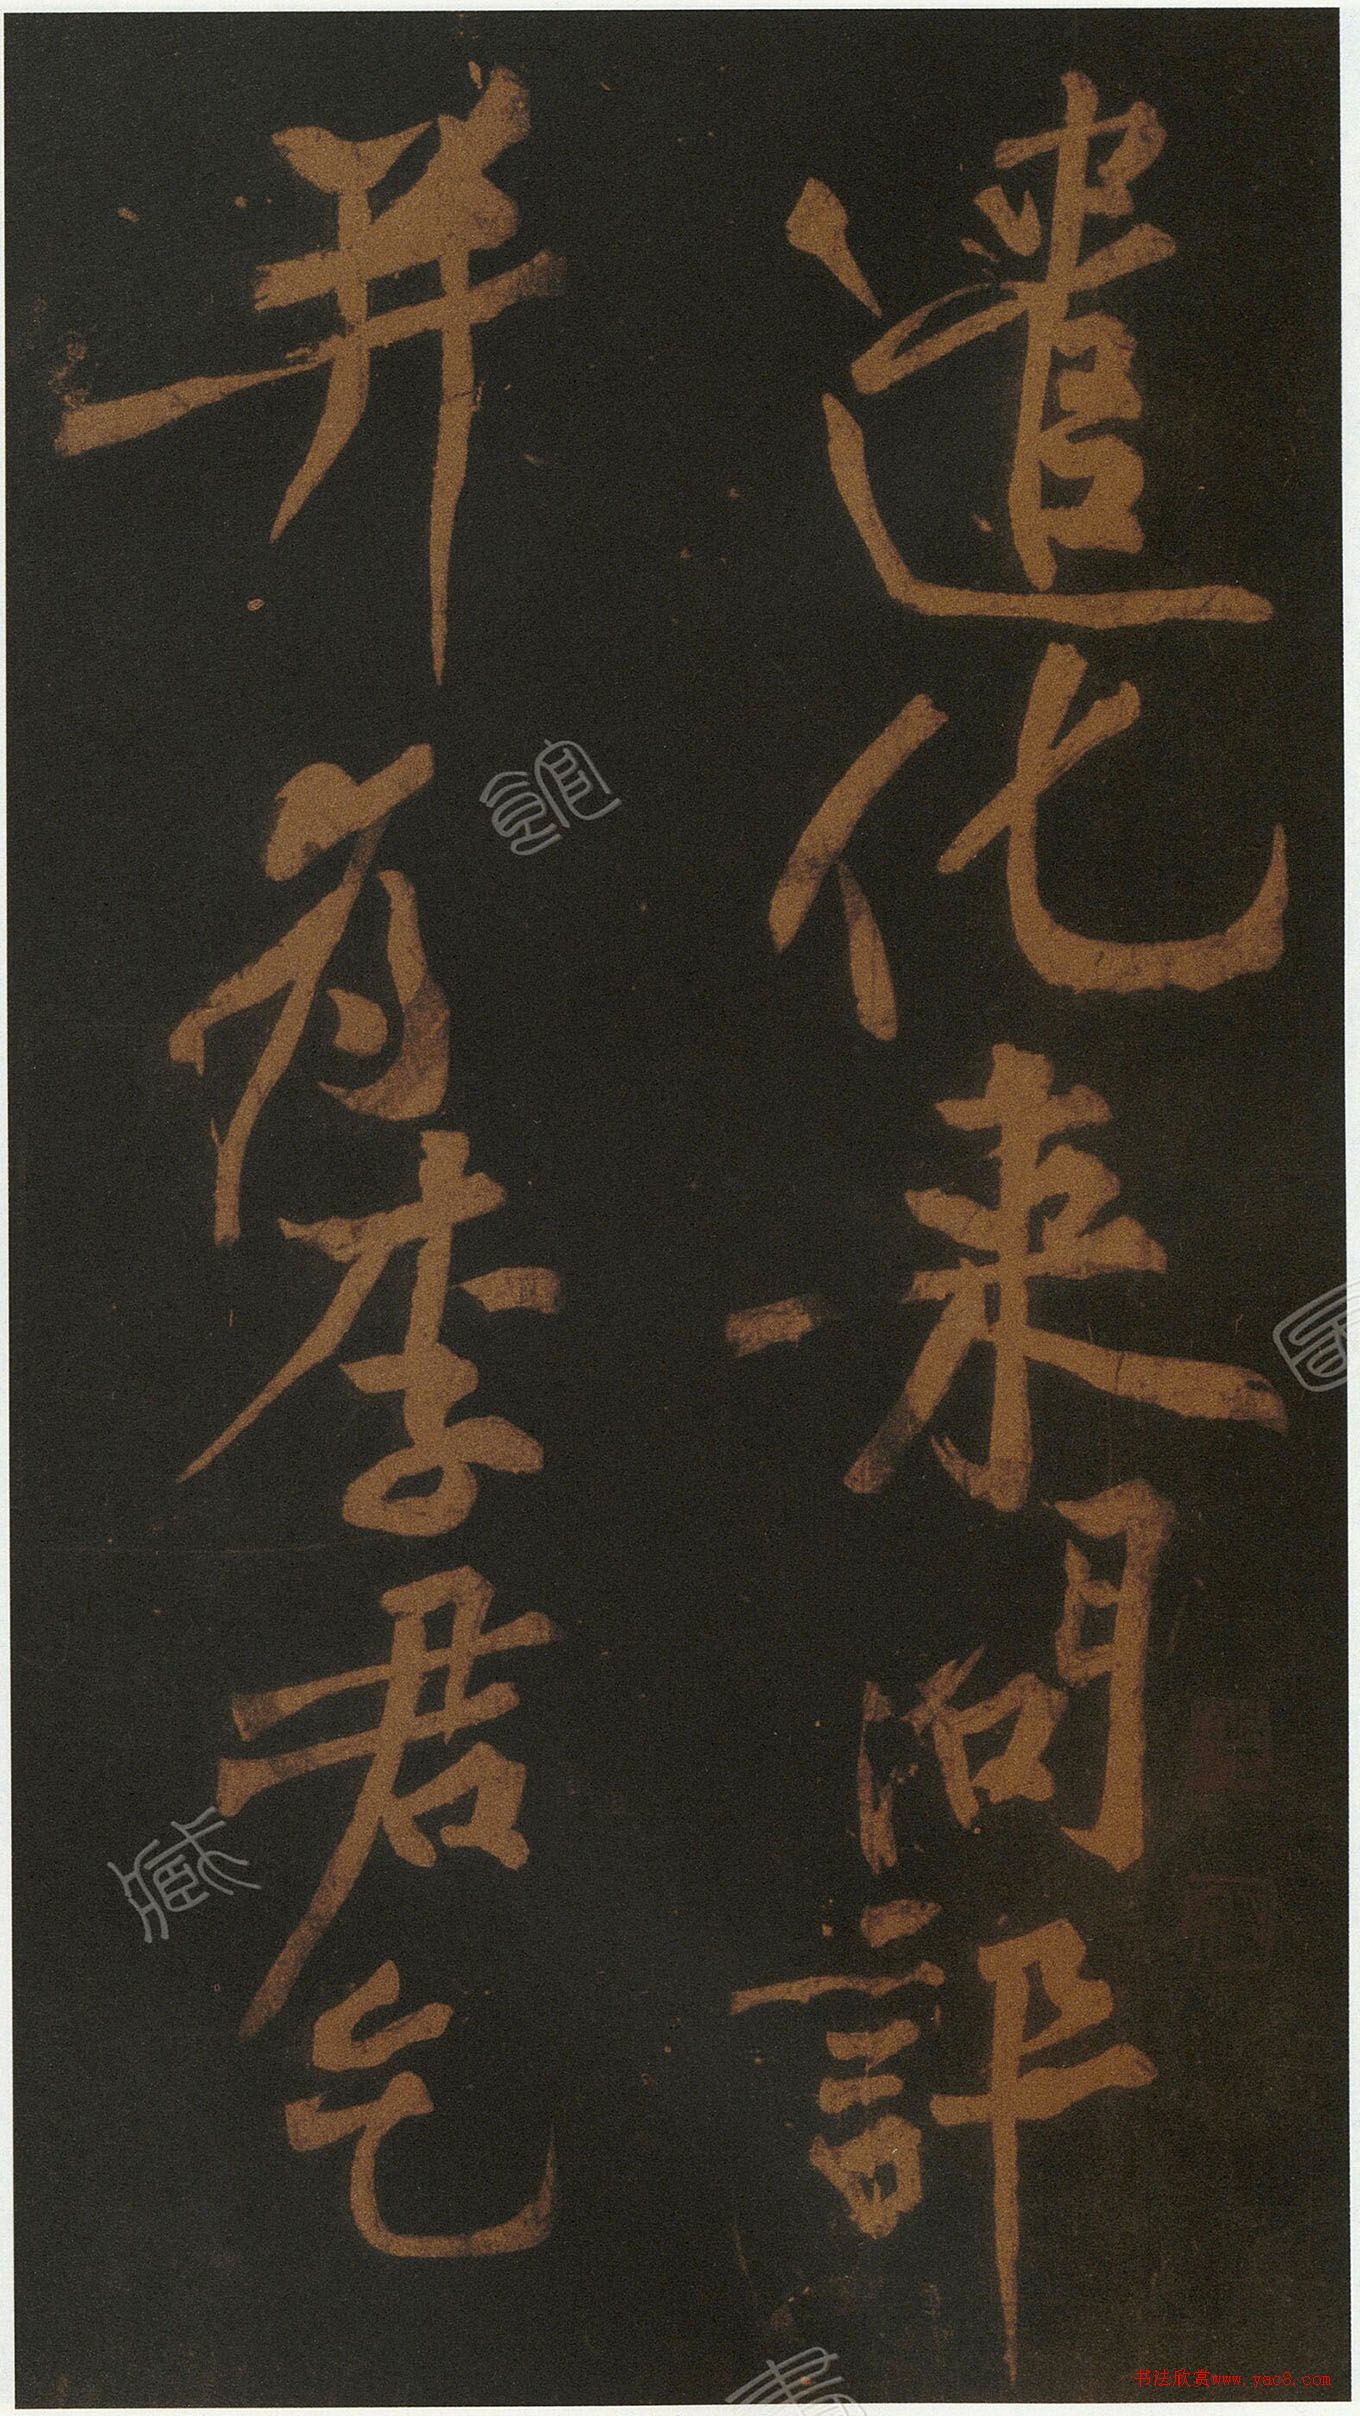 遣化来问評
并为李君乞
书法欣赏www.yac8.com